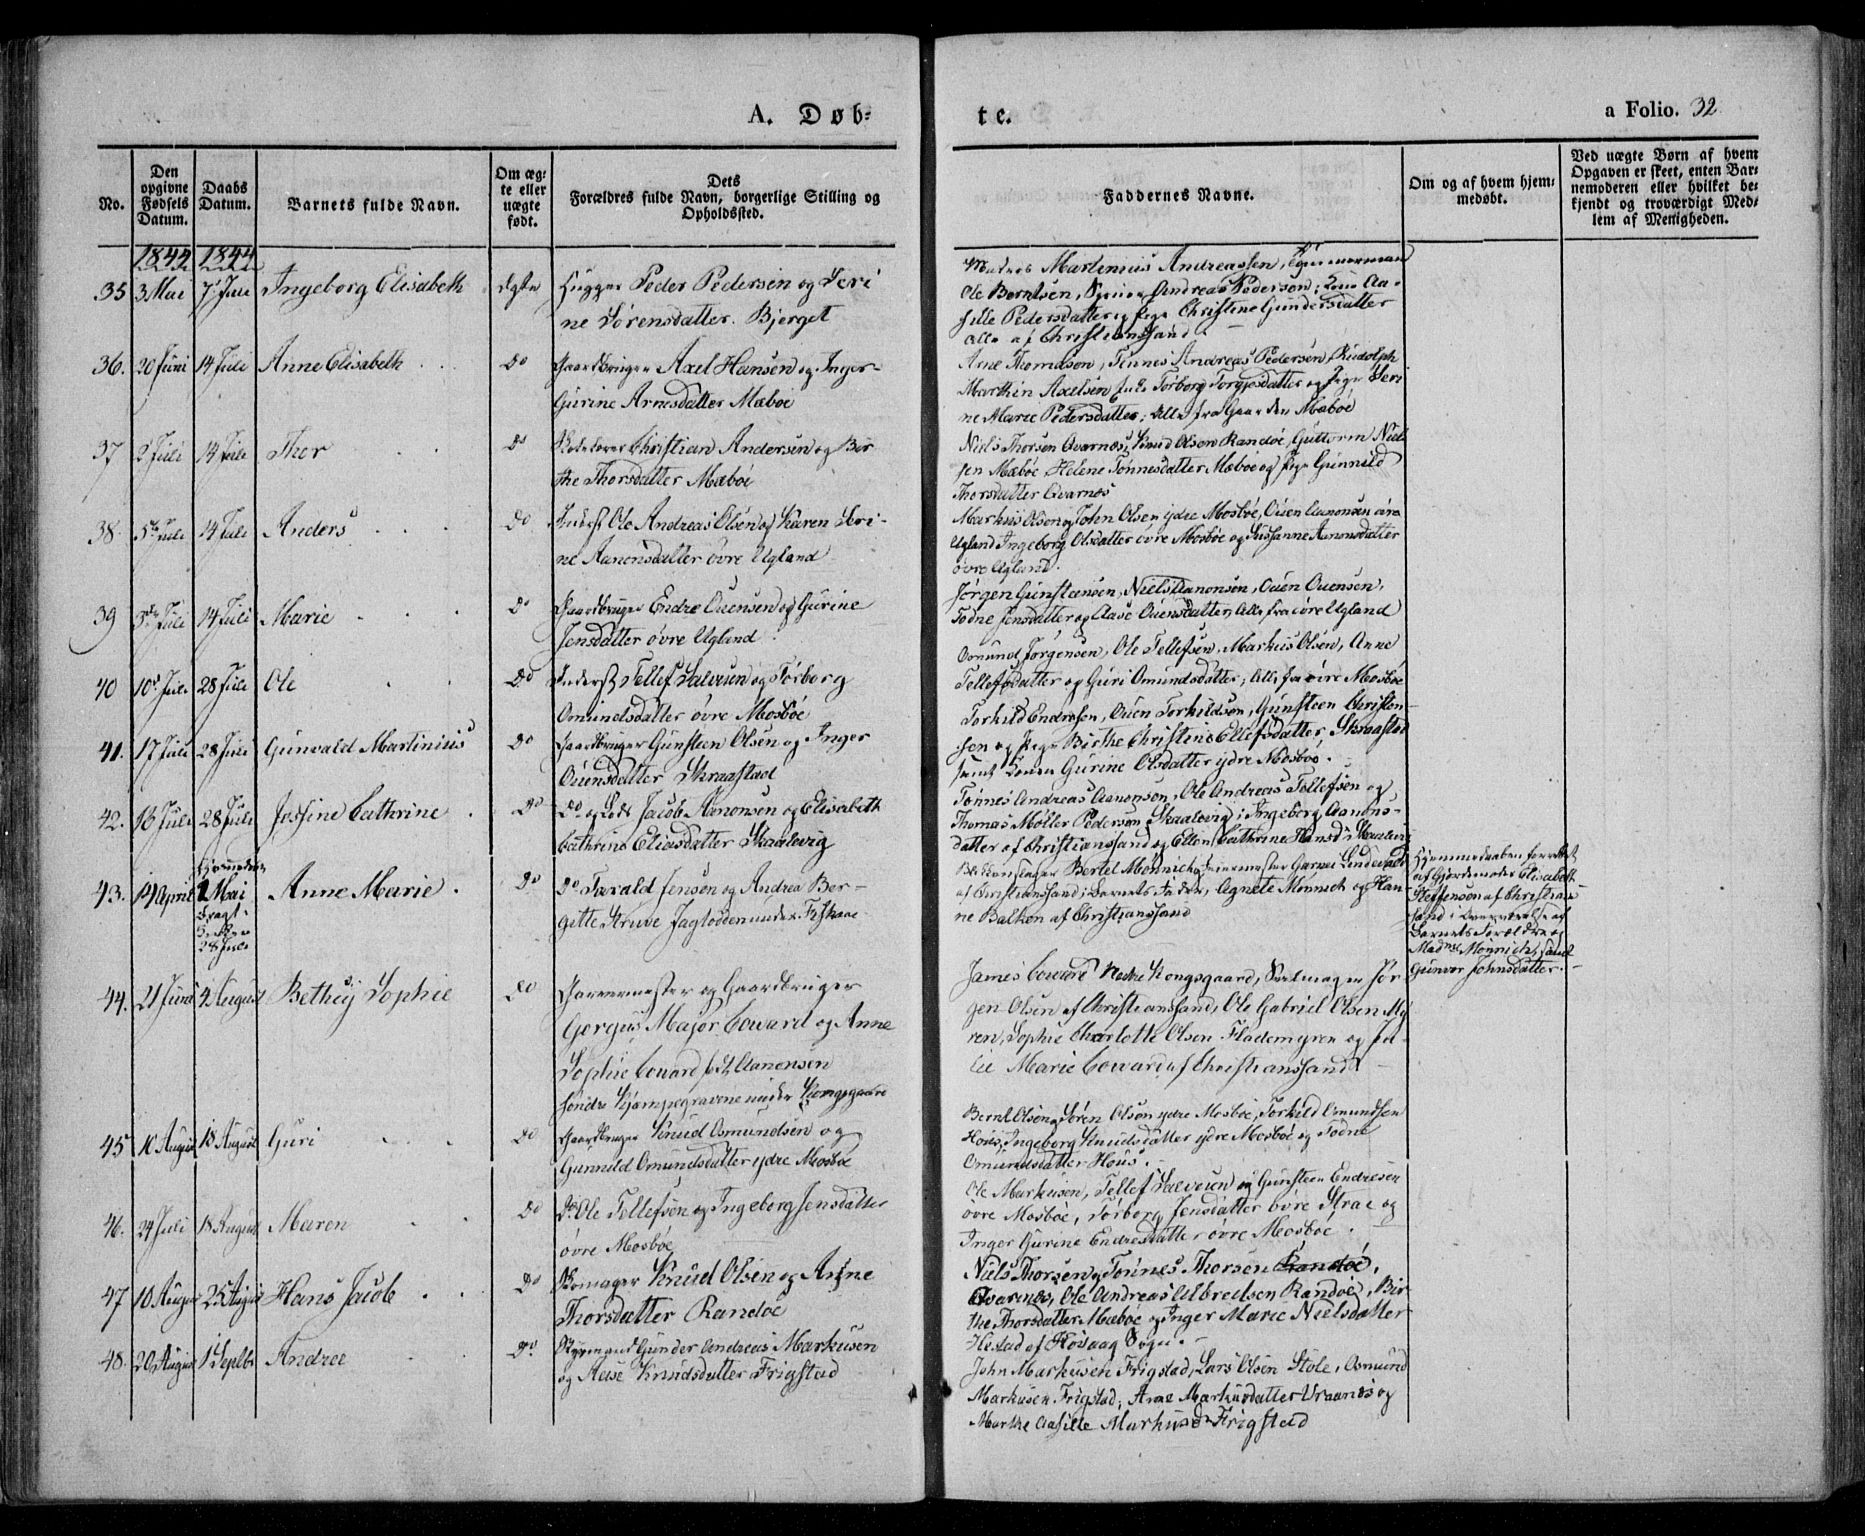 A. Døb-
te.
a Folio. 32
No.
Den opgivne Fødsels Datum.
Daabs Datum.
Barnets fulde Navn.
Om ægte eller uægte født.
Dets Forældres fulde Navn, borgerlige Stilling og Opholdssted.
Faddernes Navne.
Om og af hvem hjemmedøbt.
Ved uægte Børn af hvem Opgaven er skeet, enten Barnemoderen eller hvilket bekjendt og troværdigt Medlem af Menigheden.
1844 1844
35 3 Mai 7 Juli Ingeborg Elisabeth ægte Hugger Peder Pedersen og Seri
ne Sørensdatter. Bjerget
Martinius Andreassen, Tømmermand
Ole Berntsen, Andreas Pedersen, Kone Aa-
sille Pedersdatter og Pige Christine Gundersdatter
alle af Christianssand
36. 20 Juni 14 Juli Anne Elisabeth Do Gaardbruger Axel Hansen og Inger
Gurine Arnesdatter Mæbøe
Arne Thomason, Tønnes Andreas Pedersen, Rudolph
Marthin Axelsen, Torborg Torgjesdatter og Pige Seri
ne Marie Pedersdatter; Alle fra Gaarden Mæbøe
37 2 Juli 14 Juli Thor Do Christian Andersen og Bir
the Thorsdatter Mæbøe
Niels Thorsen Qvarnes, Knud Olsen Randøe, Guttorm Niel
sen Mæbøe Helene Tønnesdatter Mæbøe og Pige Gunnild
Thorsdatter Qvarnes
38. 5te Juli 14 Juli Anders Do Inderst Ole Andreas Olsen og Karen Seri-
ne Aanonsdatter øvre Ugland
Markus Olsen og John Olsen ydre Mosbøe, Ouen Aanonsen øvre
Ugland Ingeborg Olsdatter øvre Mosbøe og Susanne Aanonsdatter
øvre Ugland.
39 3die Juli 14 Juli Marie Do Gaardbruger Endre Ouensen og Gurine
Jensdatter øvre Ugland
Jørgen Gunsteensen, Niels Aanonsen, Ouen Ouensen,
Todne Jensdatter og Aase Ouensdatter, Alle fra øvre Ugland
40 10de Juli 28 Juli Ole Do Inderst Tellef Salvesen og Torborg
Omundsdatter øvre Mosbøe
Osmund Jørgensen, Ole Tellefsen, Markus Olsen, Anne
Tellefsdatter og Guri Omundsdatter; Alle fra øvre Mosbøe
41. 17 Juli 28 Juli Gunvald Martinius Do Gaardbruger Gunsteen Olsen og Inger
Ouensdatter Skraastad
Torkild Endresen, Ouen Torkildsen, Gunsteen Christen-
sen og Pige Birthe Christine Ellefsdatter, Skraastad
samt Konen Gurine Olsdatter ydre Mosbøe.
42. 16 Juli 28 Juli Josfine Cathrine Do Do og Lods Jacob Aanonsen og Elisabeth
Cathrine Eliasdatter Skaalevig
Tønnes Andreas Aanonsen, Ole Andreas Tellefsen og
Thomas Møller Pedersen, Skaalevig; Ingeborg Aanons-
datter af Christianssand og Ellen Cathrine Hansd. Skaalevig
43. 14 April Hjemmedøbt
1 Mai
bragt i
Kirken
28 Juli
Anne Marie. Do Do Tarald Jensen og Andrea Ber-
gitte Struve Jagtodden under Fiskaae
Bertel Mønnich, Garnes Lindevad
af Christianssand; Barnets Fader, Agnete Mønnich og Han-
ne Balken af Christianssand
Hjemmedaaben forrettet
af Gjordemoder Elisabeth
Steffenson af Christian-
sand i Overværelse af
Barnets Forældre og
Madme Mønnich, samt
Gunvor Johnsdatter.
44. 21 Juni 4 August Bethsy Sophie Do Garvermester og Gaardbruger
Gorgus Major Coward og Anne
Sophie Coward født Aanonsen
søndre Kjempegravene under Kongsgaard
James Coward Nedre Kongsgaard, Seilmager Jør
gen Olsen af Christianssand, Ole Gabriel Olsen My
ren, Sophie Charlotte Olsen Flademyren og Ju-
lie Marie Coward af Christianssand
45 10 August 18 August Guri Do Gaardbruger Knud Osmundsen og
Gunnild Omundsdatter ydre Mosbøe
Bernt Olsen, Søren Olsen ydre Mosbøe, Torkild Omundsen
Høus, Ingeborg Knudsdatter ydre Mosbøe og Todne
Omundsdatter Høus.
46. 24 Juli 18 August Maren Do Do Ole Tellefsen og Ingeborg Jensdatter
øvre Mosbøe
Ole Markusen, Tellef Salvesen og Gunsteen Endresen
øvre Mosbøe, Torborg Jensdatter øvre Straie og
Inger Gurine Endresdatter øvre Mosbøe.
47 10 August 25 August Hans Jacob Do Skomager Knud Olsen og Anne
Thorsdatter Randøe
Niels Thorsen og Tønnes Thorsen Randøe,
Qvarnes, Ole Andreas Albretsen Randøe, Bir
the Thorsdatter Mæbøe og Inger Marie Nielsdatter
Hestad af Høvaag Sogn.
48. 20 August 1 Septbr Andrea Do Styrmand Gunder Andreas Markusen
og Aase Knudsdatter Frigstad
John Markusen Frigstad, Lars Olsen Stole, Osmund
Markusen Frigstad; Anne Markusdatter Vraanes og
Marthe Aasille Markusd. Frigstad